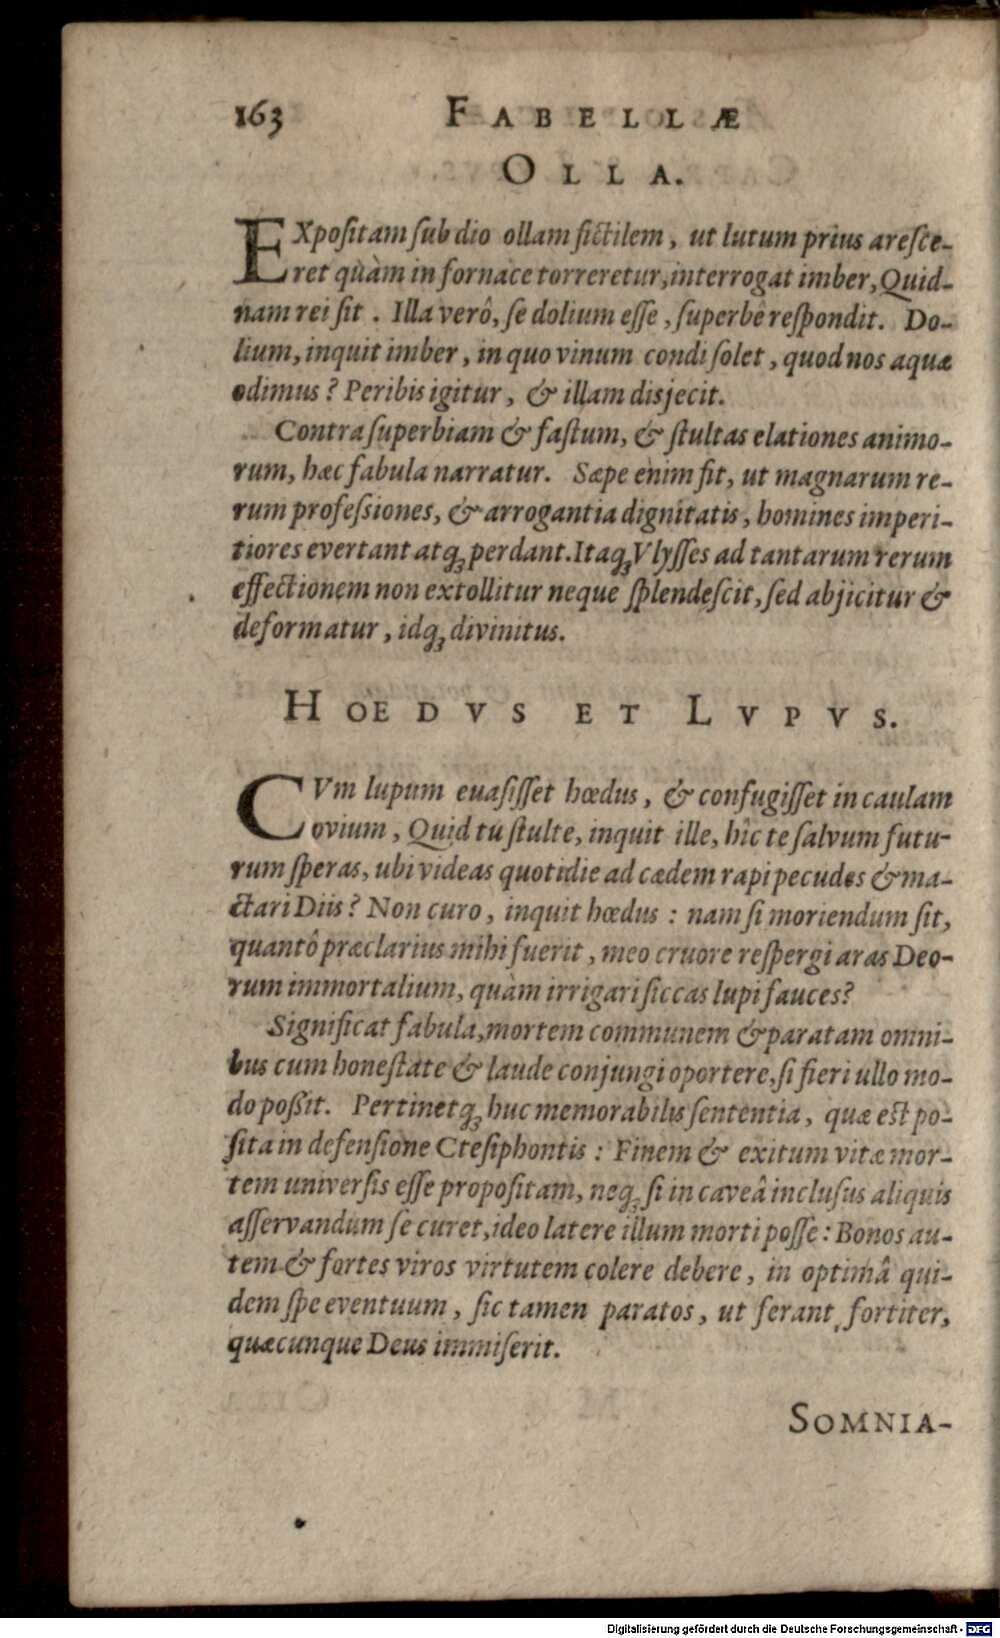 163 FABELLÆ
OLLA.
EXpoſitam ſub dio ollam fictilem, ut lutum prius areſce-
ret quàm in fornace torreretur, interrogat imber, Quid-
nam rei ſit. Illa verô, ſe dolium eſſe, ſuperbê reſpondit. Do-
lium, inquit imber, in quo vinum condi ſolet, quod nos aquæ
odimus? Peribis igitur, & illam disjecit.
Contra ſuperbiam & faſtum, & ſtultas elationes animo-
rum, hæc fabula narratur. Sæpe enim fit, ut magnarum re-
rum profeſsiones, & arrogantia dignitatis, homines imperi-
tiores evertant atq; perdant. Itaq; Vlyſſes ad tantarum rerum
effectionem non extollitur neque ſplendeſcit, ſed abjicitur &
deformatur, idq; divinitus.
HOEDVS ET LVPVS.
CVm lupum euaſiſſet hœdus, & confugiſſet in caulam
ovium, Quid tu ſtulte, inquit ille, hîc te ſalvum futu-
rum ſperas, ubi videas quotidie ad cædem rapi pecudes & ma-
ctari Diis? Non curo, inquit hœdus: nam ſi moriendum ſit,
quantô præclarius mihi fuerit, meo cruore reſpergi aras Deo-
rum immortalium, quàm irrigari ſiccas lupi fauces?
Significat fabula, mortem communem & paratam omni-
bus cum honeſtate & laude conjungi oportere, ſi fieri ullo mo-
do poßit. Pertinetq; huc memorabilis ſententia, quæ eſt po-
ſita in defenſione Cteſiphontis: Finem & exitum vitæ mor-
tem univerſis eſſe propoſitam, neq; ſi in caveâ incluſus aliquis
aſſervandum ſe curet, ideo latere illum morti poſſe: Bonos au-
tem & fortes viros virtutem colere debere, in optimâ qui-
dem ſpe eventuum, ſic tamen paratos, ut ferant fortiter,
quæcunque Deus immiſerit.
SOMNIA-
Digitalisierung gefördert durch die Deutsche Forschungsgemeinschaft - DFG